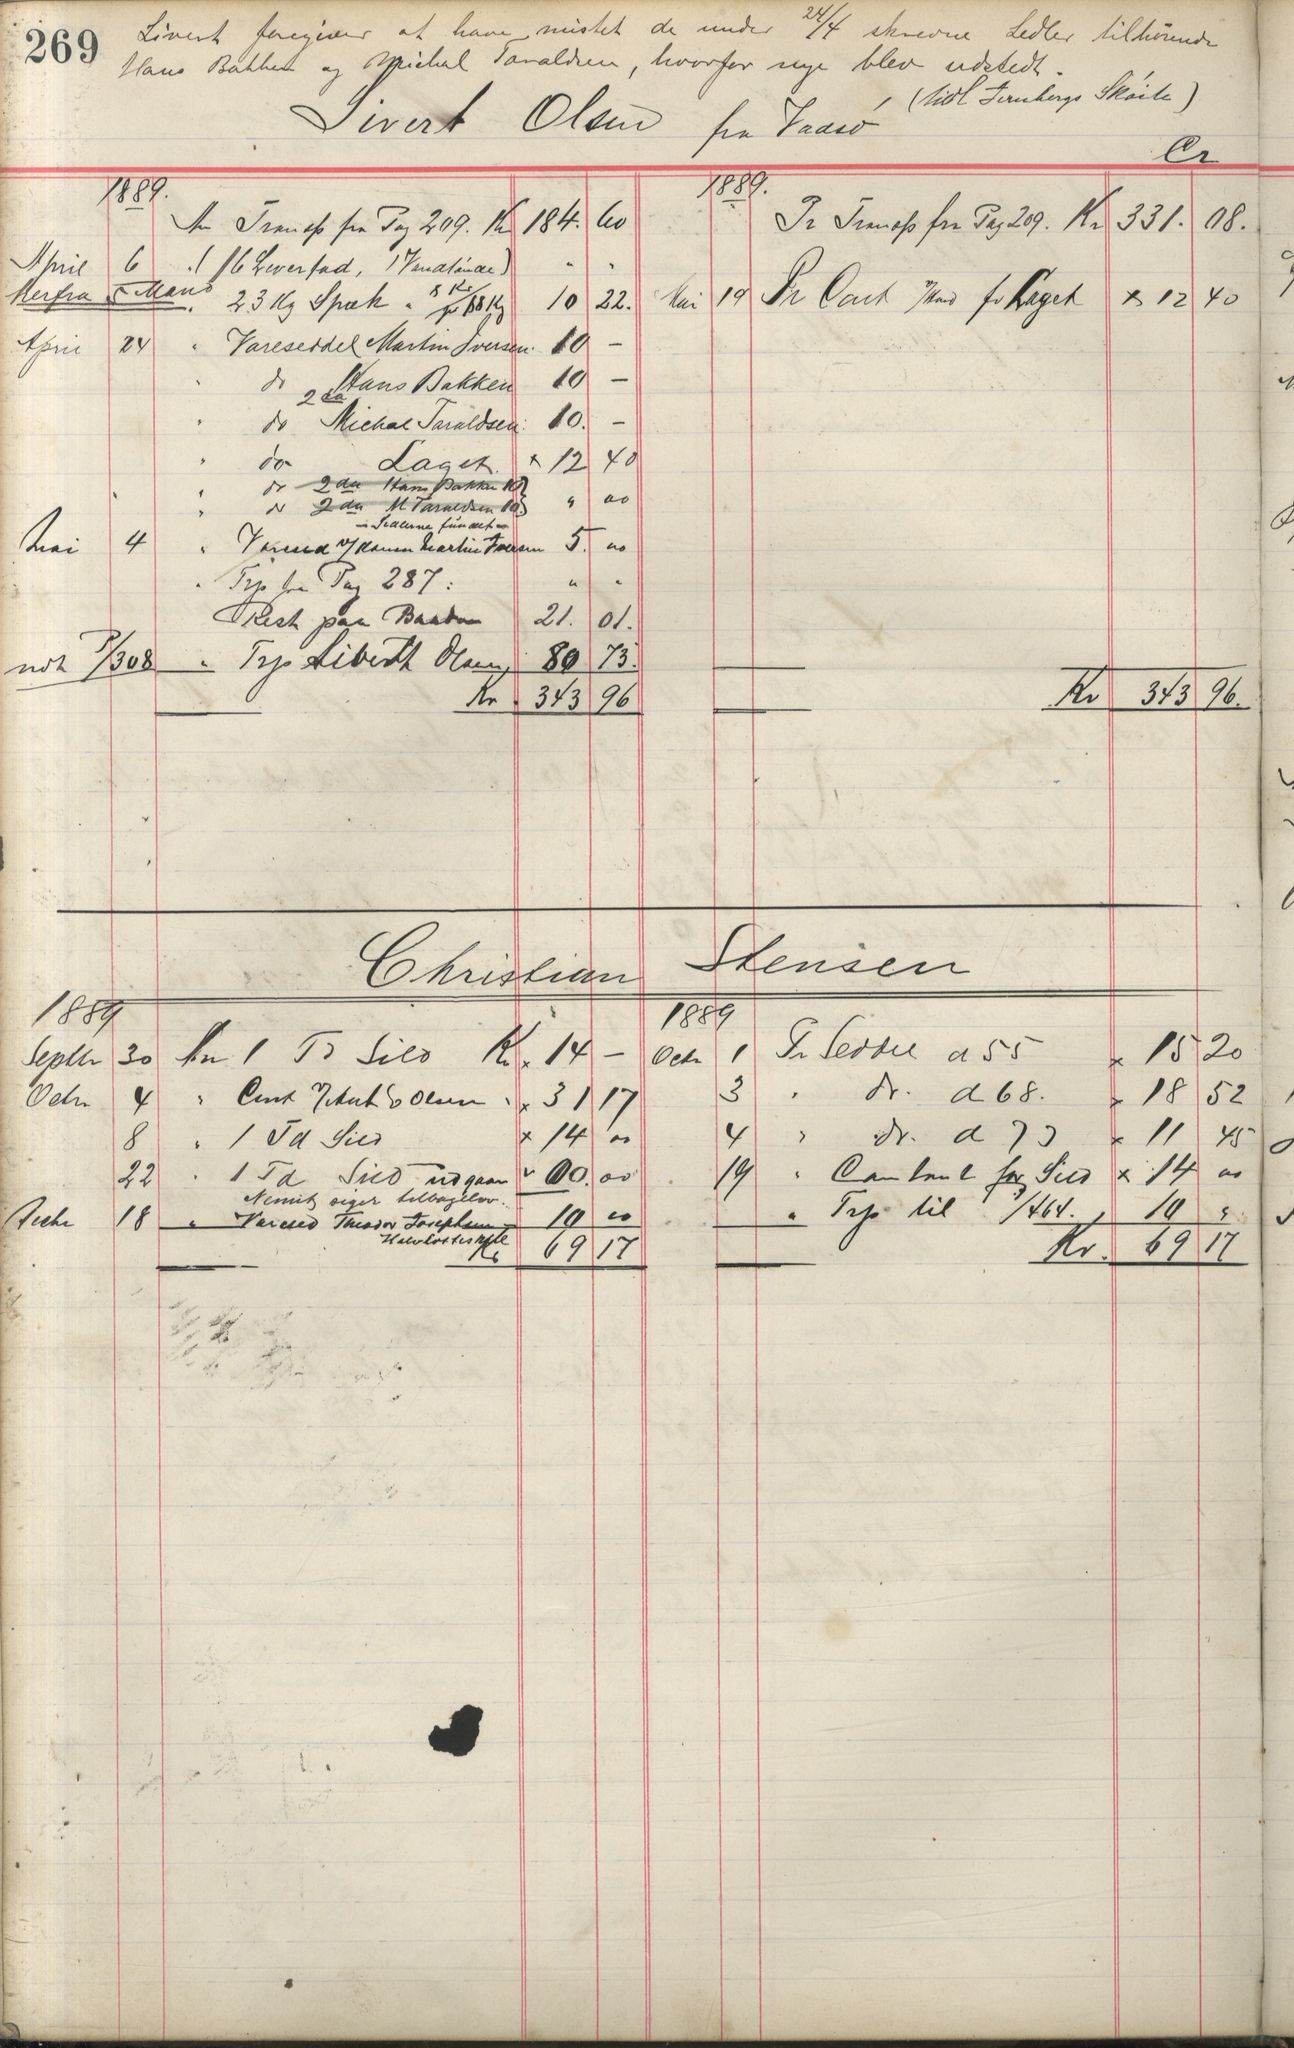 269
Sivert foregiver at have mistet de under 24/4 skrevne Sedler tilhørende
Hans Bakken og Michal Taraldsen, hvorfor nye blev udstedt.
Sivert Olsen fra Vadsø
Cr
1889.
An Transp fra Pag 209. Kr 184. 60
April 6 1 16 Leverfad, 1 Vandtønde) " "
Herfra 5 Mand " 23 Kg Spæk " 8 Kr 10 22.
April 24 " Vareseddel Martin Iversen. 10 —
" do Hans Bakken 10 —
" do Michal Taraldsen. 10. —
" do Laget x 12 40
" do 2da Hans Bakken 10
" do 2da M Taraldsen 10 " 00
Sedlerne fundet
Mai 4 " Varesed Martin Iversen 5. 00
" Trp fra Pag 287: " "
Rest paa Baaden 21. 01.
P/308 " Trp Sivert Olsen 80 75.
Kr 343 96
1889.
Pr Transp fra Pag 209. Kr 331. 08.
Mai 19 Pr Cont for Laget x 12 40
Kr 343 96.
Christian Stensen
1889
Septbr 30 An 1 Td Sild Kr x 14 —
Octr 4 " Cont Olsen x 31 17
8 " 1 Td Sild x 14 00
22 " 1 Td Sild udgaar " 00. 00
siger tilbagelev.
18 " Varesed Theodor Josephsen 10 00
Kr 69 17
1889
Octr 1 Pr Seddel a 55 x 15 20
3 " do. a 68. x 18 52
4 " do. a 73 x 11 45
19 " Contant for Sild x 14 00
" Trp til /464. 10 "
Kr. 69 17